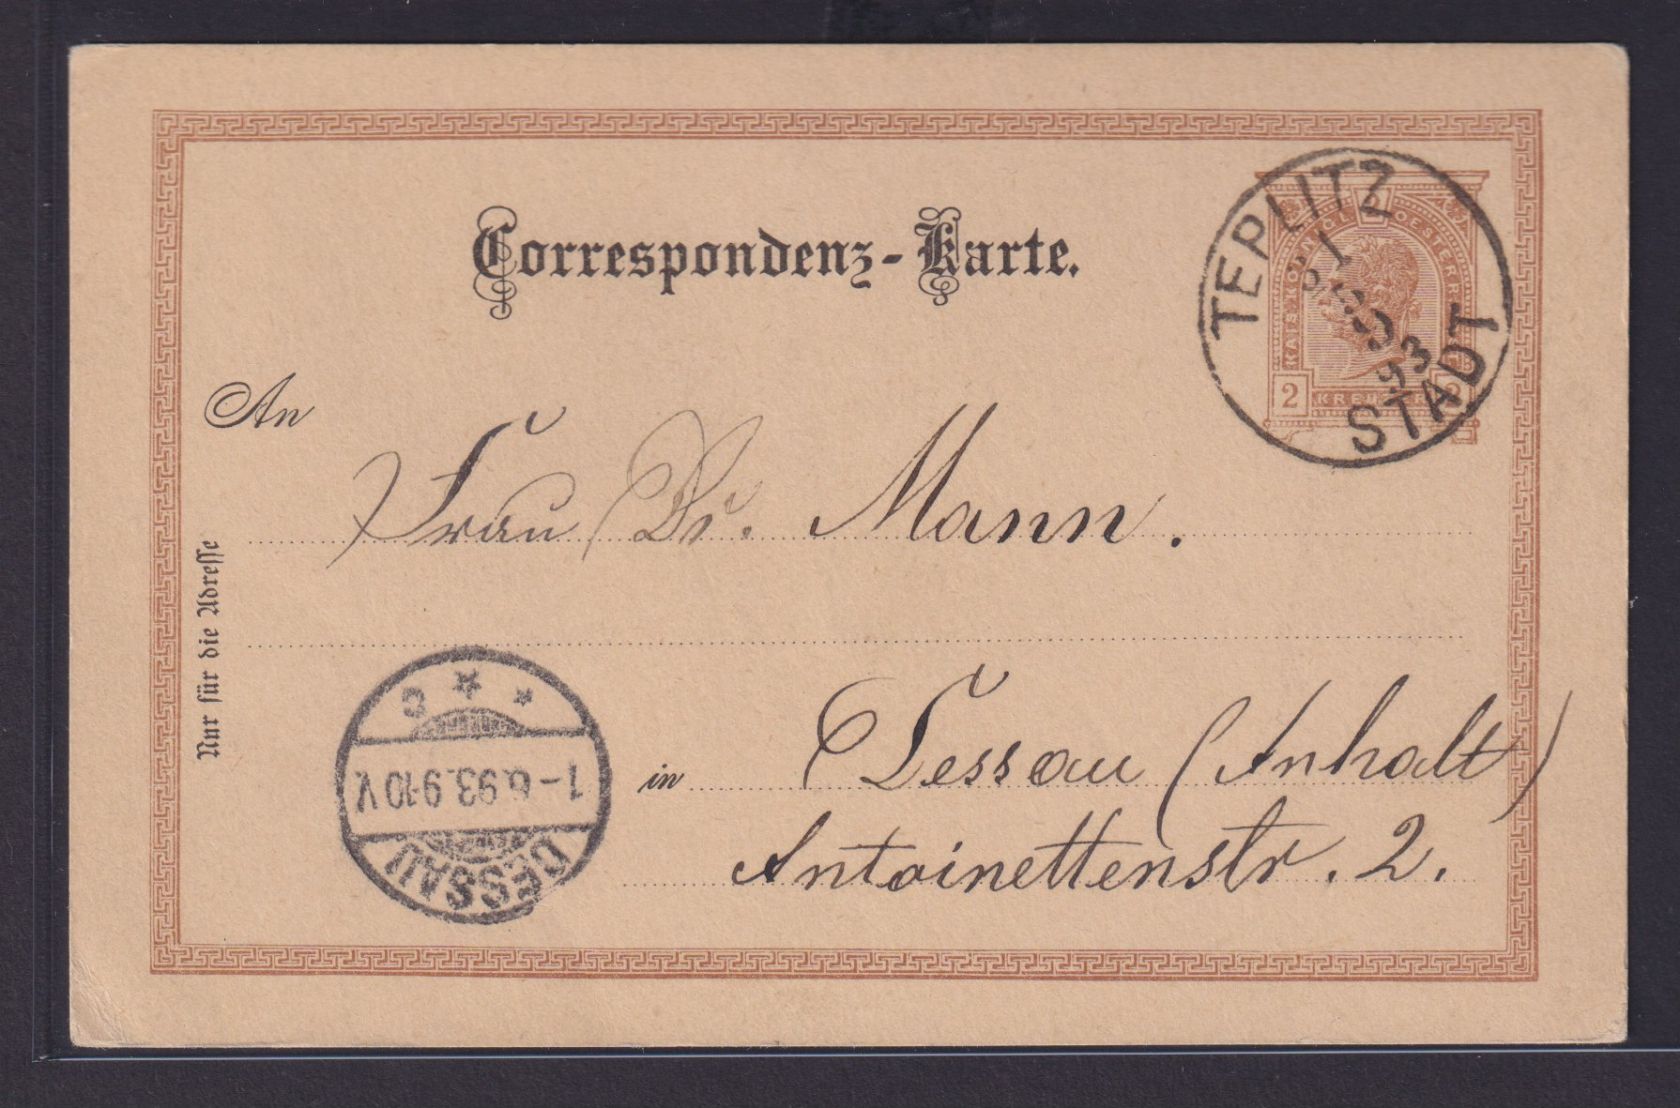 Correspondenz-Karte.
KAIS. KÖNIGL. OESTERR.
2 KREUZ 2
TEPLITZ
STADT
31
5
93
An
Frau Dr. Mann.
Nur für die Adresse
in Dessau (Anhalt)
Antoinettenstr. 2.
DESSAU
1-6.93.9-10V.
c * *